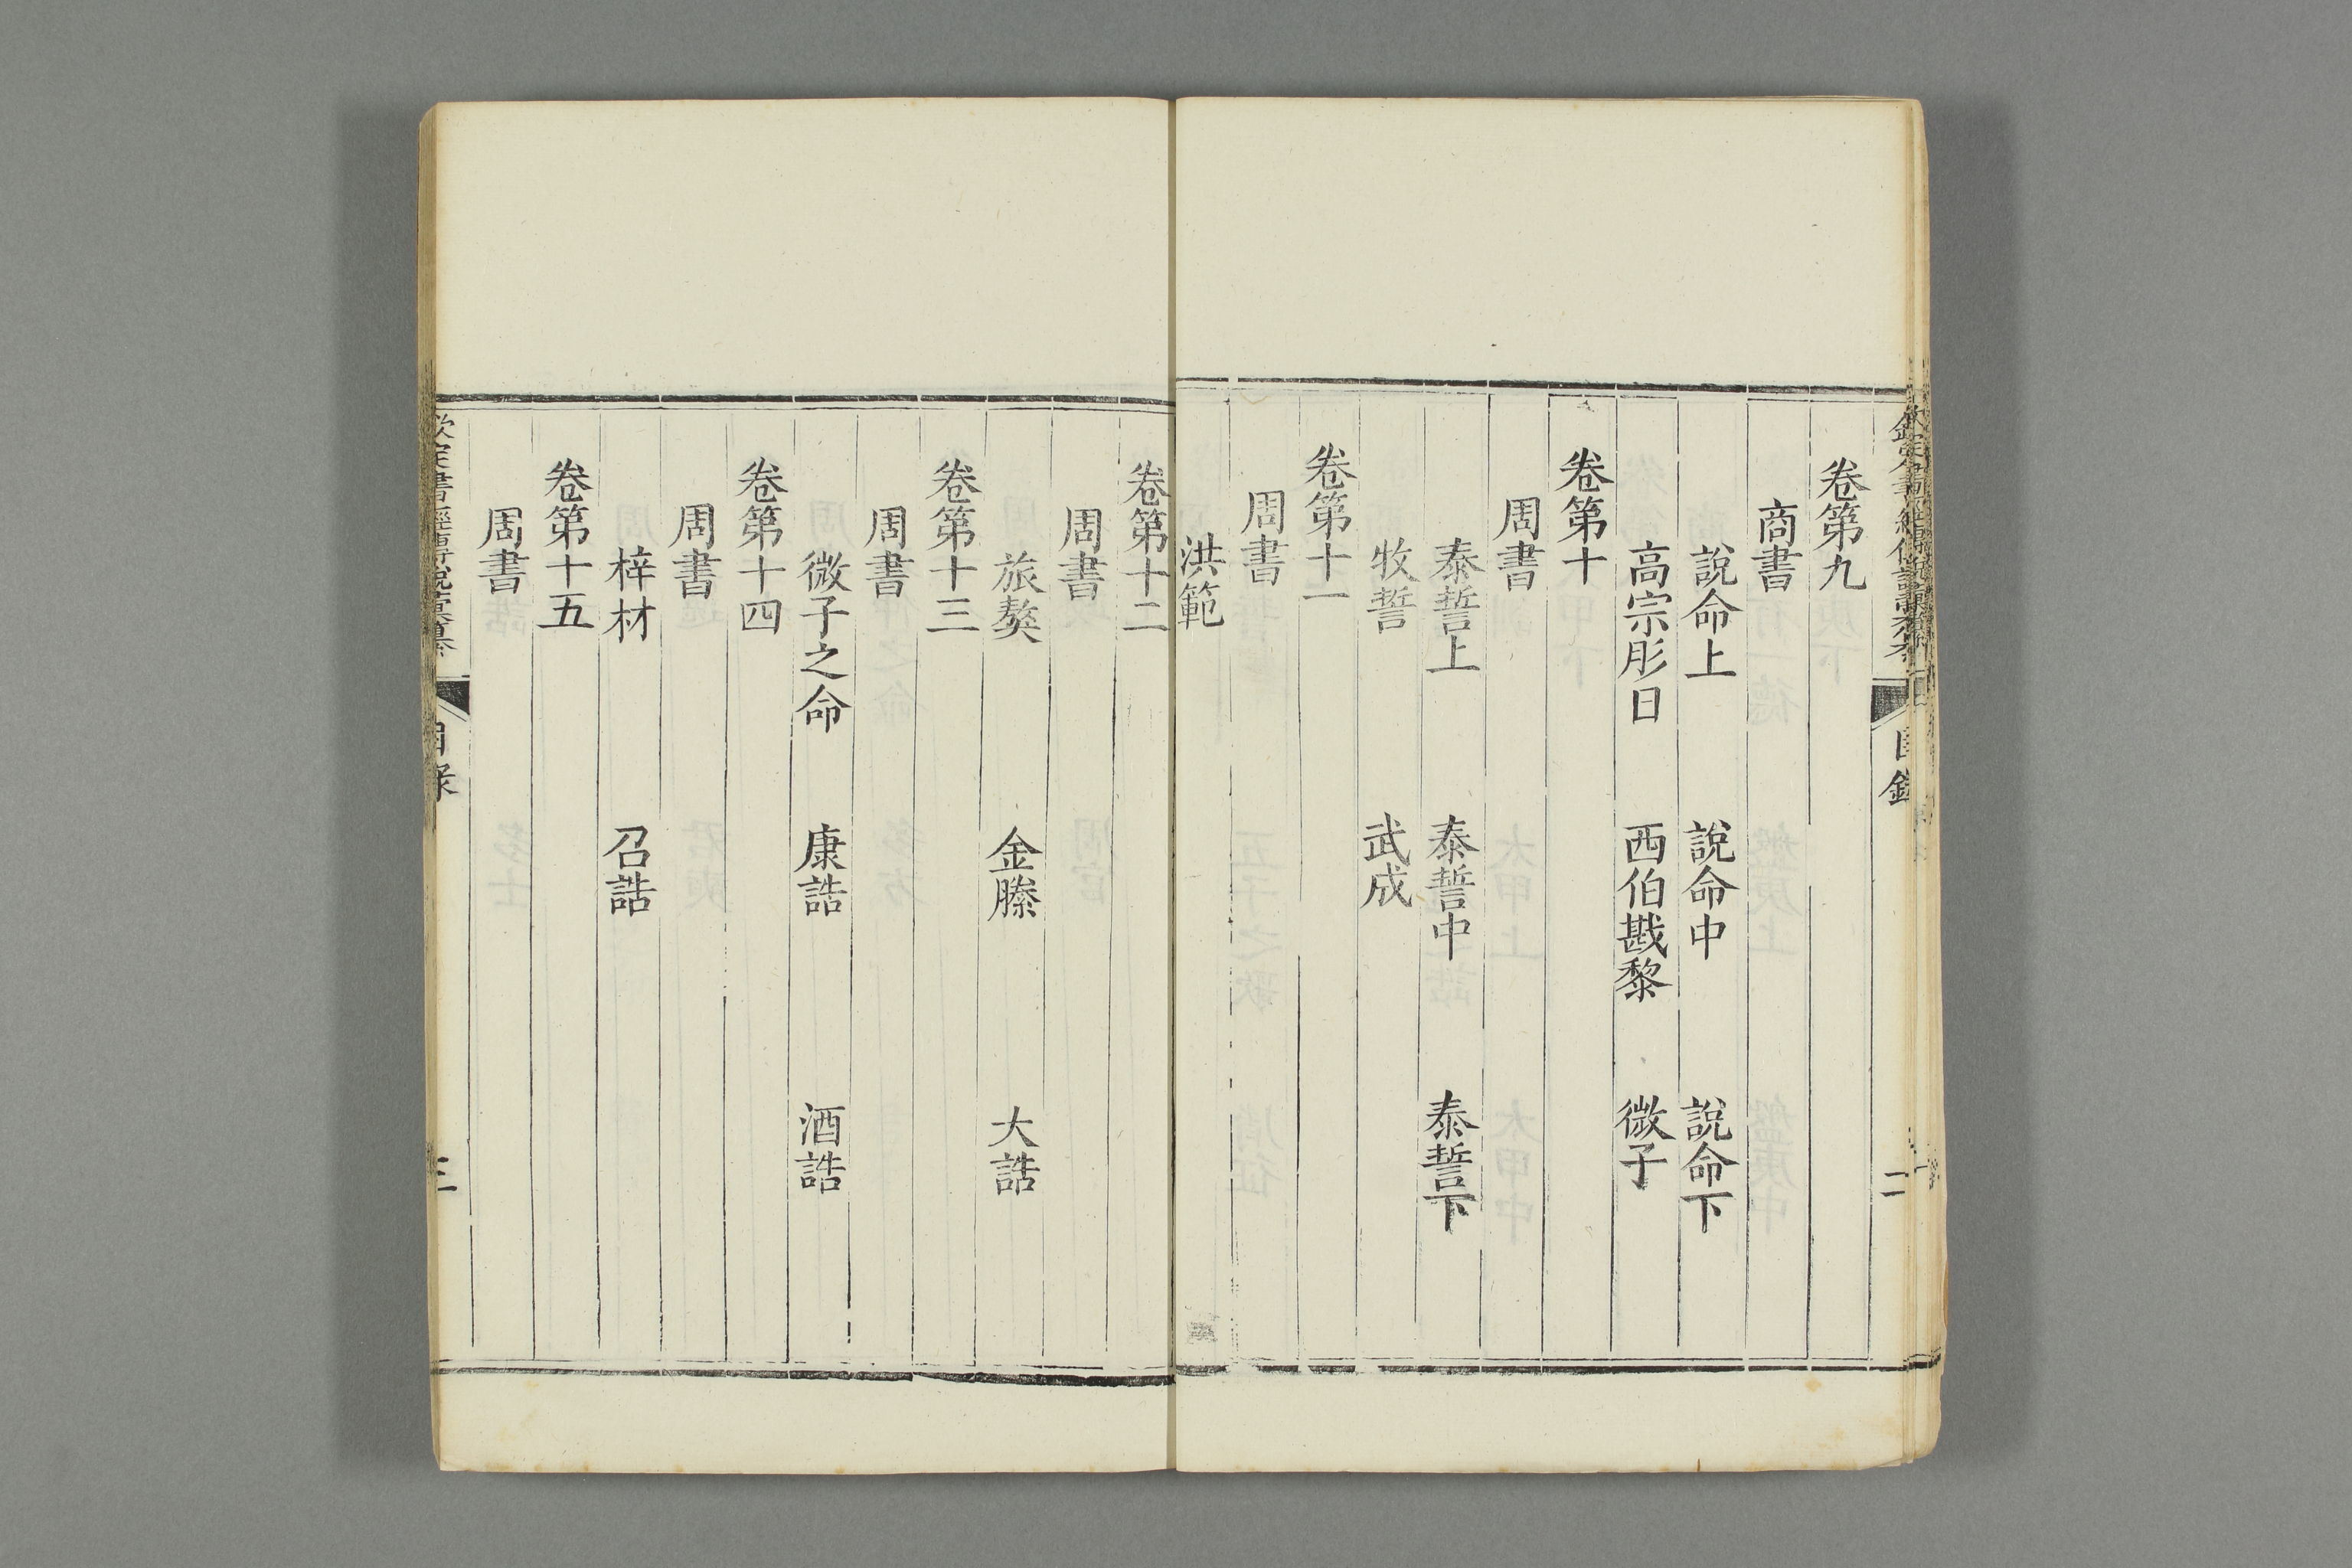 卷第九
商書
說命上 說命中 說命下
高宗肜日 西伯戡黎 微子
卷第十
周書
泰誓上 泰誓中 泰誓下
牧誓 武成
卷第十一
周書
洪範
卷第十二
周書
旅獒 金縢 大誥
卷第十三
周書
微子之命 康誥 酒誥
卷第十四
周書
梓材 召誥
卷第十五
周書
目錄 三